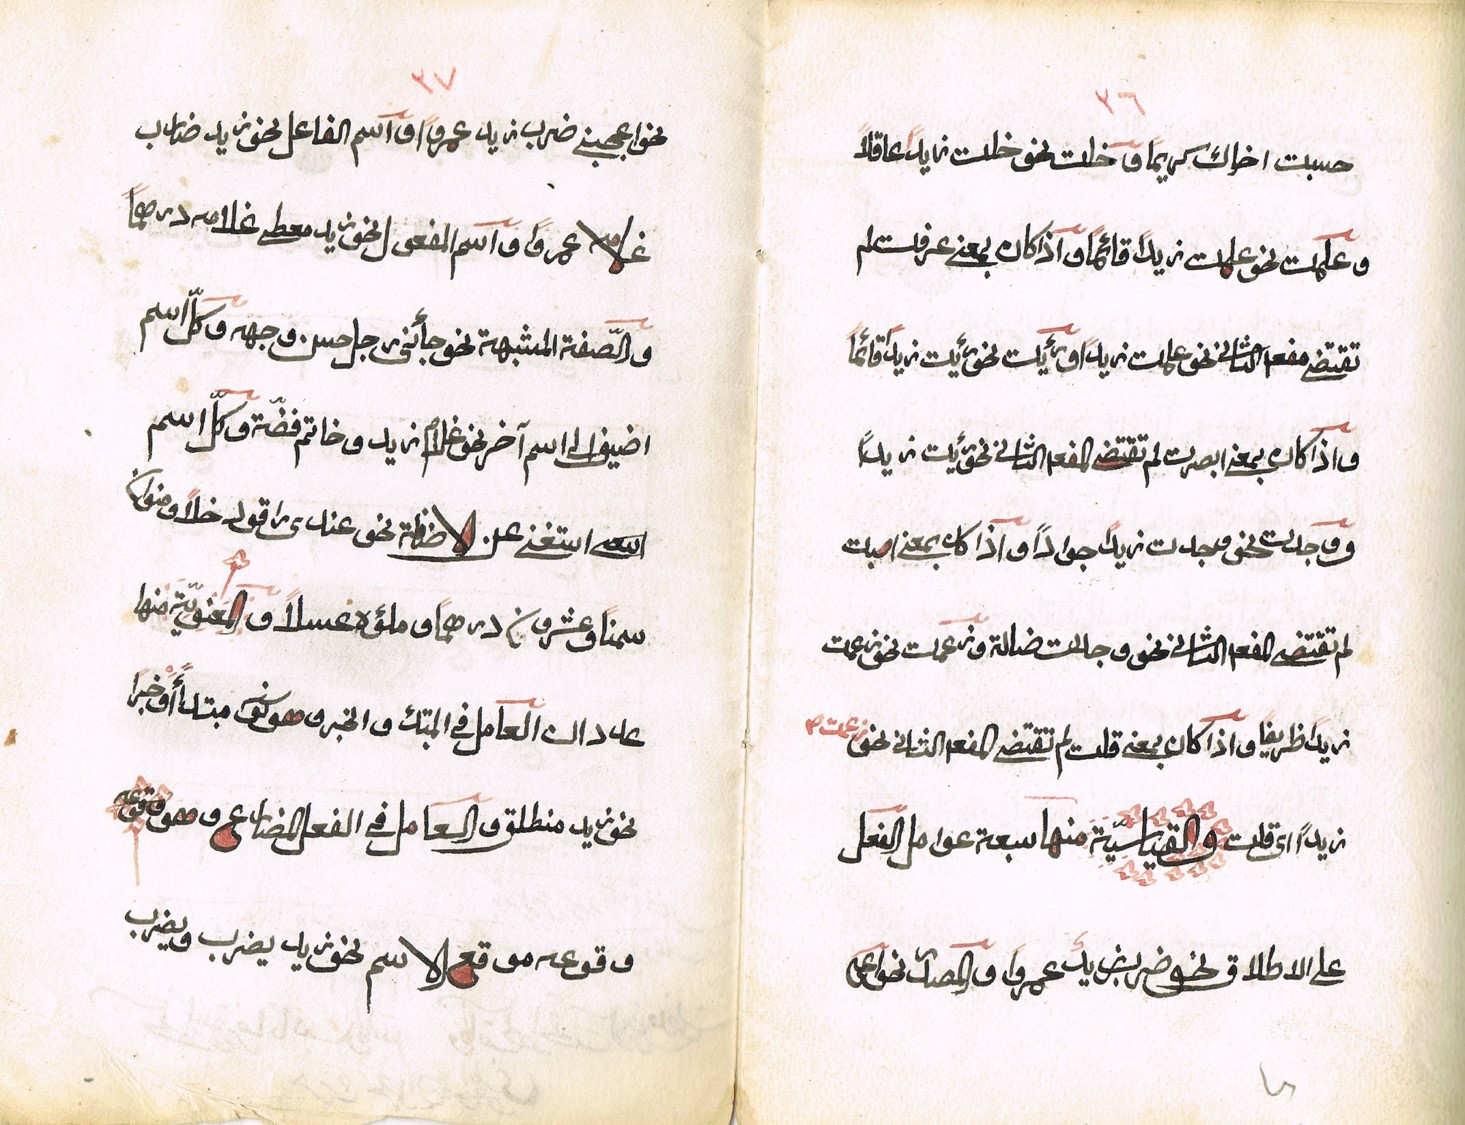 ٢٦
حسبت اخاك كريما وخلت نحو خلت زيداً عاقلاً
وعلمت نحو علمت زيداً قائماً واذا كان بمعنے عرفت لم
تقتضے مفعـ الثانے نحو علمت زيداً ورأيت نحو رأيت زيداً قائماً
واذا كان بمعنے ابصرت لم تقتضے المفعـ الثانے نحو رأيت زيداً
ووجدت نحو وجدت زيداً جواداً واذا كان بمعنے اصبت
لم تقتضے المفعـ الثانے نحو وجدت ضالة وزعمت نحو زعمت
زيداً ظريفاً واذا كان بمعنے قلت لم تقتضے المفعـ الثانے نحو زعمت
زيداً اى قلت والقياسيّة منها سبعة عوامل الفعل
علے الاطلاق نحو ضرب زيد عمرواً والمصدر نحو اعجـ
٢٧
نحو اعجبنے ضرب زيد عمرواً واسم الفاعل نحو زيد ضارب
غلامه عمرواً واسم المفعول نحو زيد معطے غلامه درهماً
والصّفة المشبهة نحو جأنى رجل حسن وجهه وكلّ اسم
اضيف الى اسم آخر نحو غلام زيد وخاتم فضّة وكلّ اسم
استغنے عن الاضافة نحو عندى راقود خلاً ومنوان
سمناً وعشرون درهماً وملؤه عسلاً والمعنويّة منها
عددان العامل فى المبتدأ والخبر وهو كونه مبتدأ وخبراً
نحو زيد منطلق والعامل فى الفعل المضارع وهو وقوعه
وقوعه موقع الاسم نحو زيد يضرب ويضرب